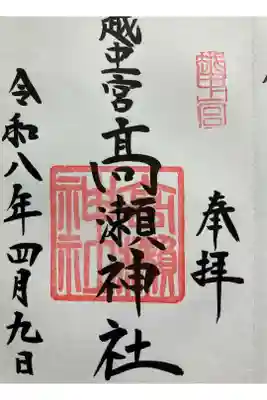 奉拝
越中一宮
越中一宮高瀬神社
高瀬神社
令和八年四月九日